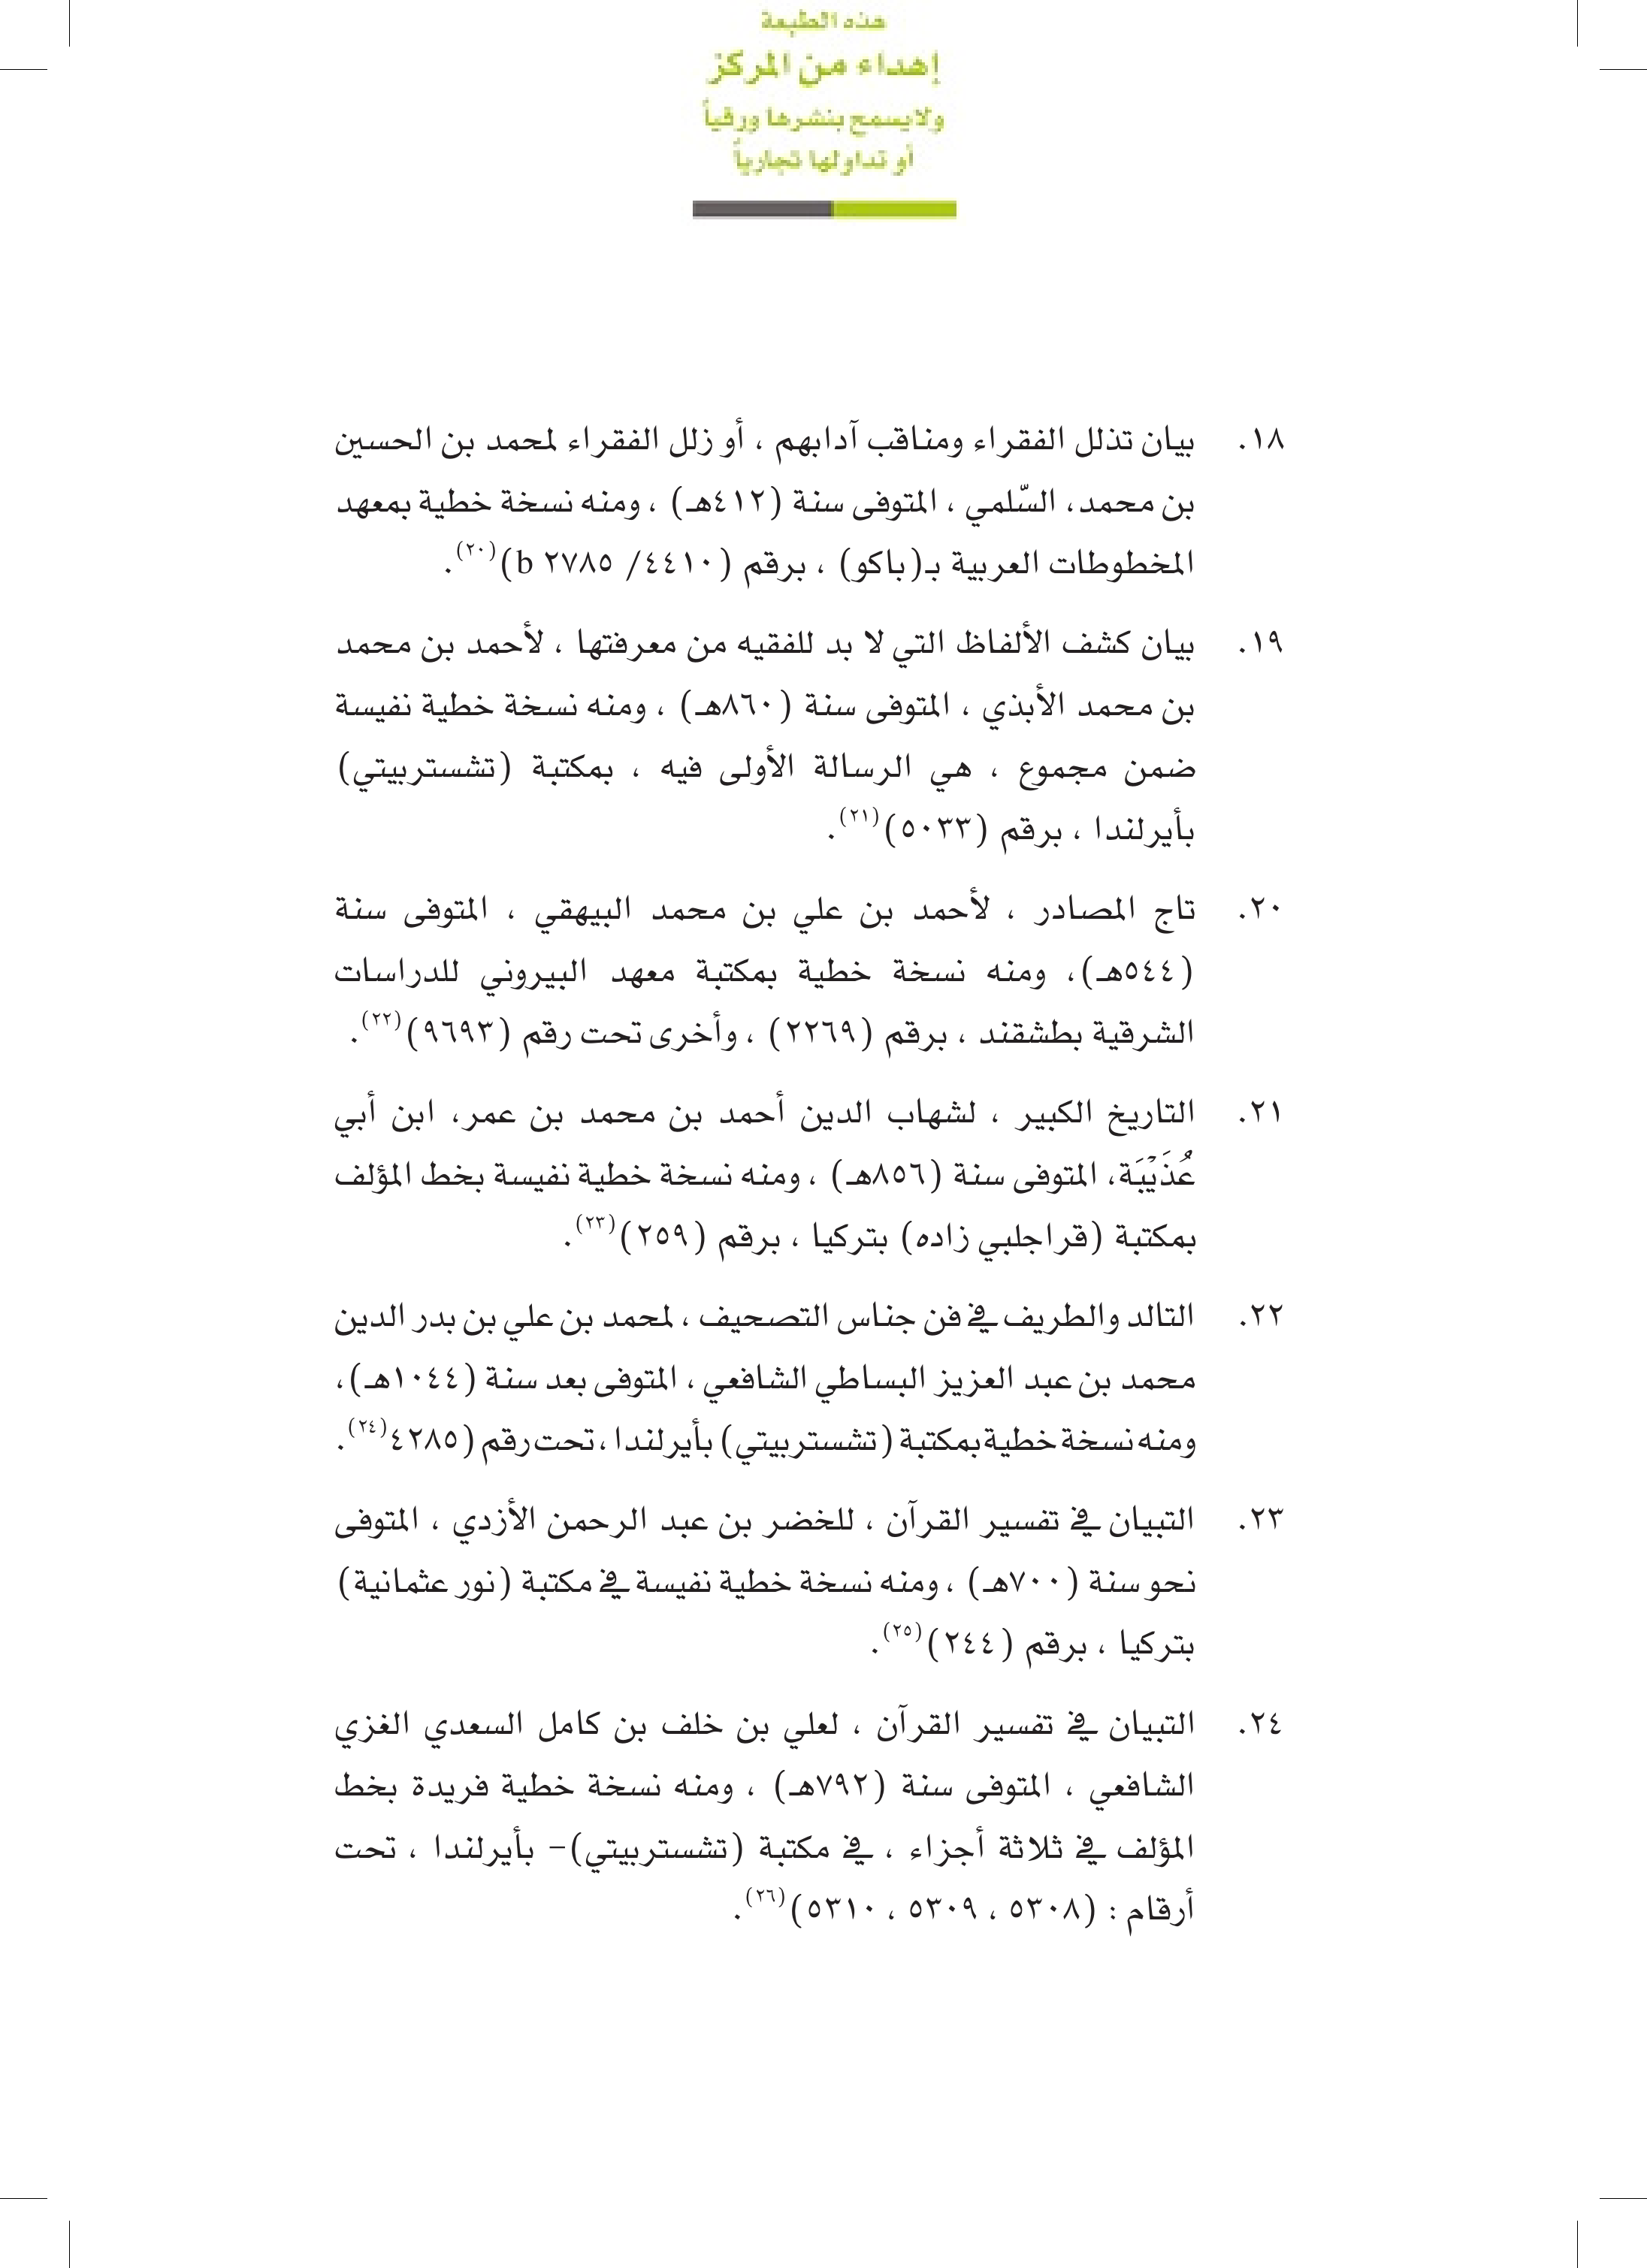 هذه الطبعة
إهداء من المركز
ولايسمح بنشرها ورقياً
أو تداولها تجارياً
١٨. بيان تذلل الفقراء ومناقب آدابهم ، أو زلل الفقراء لمحمد بن الحسين
بن محمد، السّلمي ، المتوفى سنة (٤١٢هـ) ، ومنه نسخة خطية بمعهد
المخطوطات العربية بـ(باكو) ، برقم (٤٤١٠/ ٢٧٨٥ b)(٢٠).
١٩. بيان كشف الألفاظ التي لا بد للفقيه من معرفتها ، لأحمد بن محمد
بن محمد الأبذي ، المتوفى سنة (٨٦٠هـ) ، ومنه نسخة خطية نفيسة
ضمن مجموع ، هي الرسالة الأولى فيه ، بمكتبة (تشستربيتي)
بأيرلندا ، برقم (٥٠٣٣)(٢١).
٢٠. تاج المصادر ، لأحمد بن علي بن محمد البيهقي ، المتوفى سنة
(٥٤٤هـ)، ومنه نسخة خطية بمكتبة معهد البيروني للدراسات
الشرقية بطشقند ، برقم (٢٢٦٩) ، وأخرى تحت رقم (٩٦٩٣)(٢٢).
٢١. التاريخ الكبير ، لشهاب الدين أحمد بن محمد بن عمر، ابن أبي
عُذَيْبَة، المتوفى سنة (٨٥٦هـ) ، ومنه نسخة خطية نفيسة بخط المؤلف
بمكتبة (قراجلبي زاده) بتركيا ، برقم (٢٥٩)(٢٣).
٢٢. التالد والطريف في فن جناس التصحيف ، لمحمد بن علي بن بدر الدين
محمد بن عبد العزيز البساطي الشافعي ، المتوفى بعد سنة (١٠٤٤هـ)،
ومنه نسخة خطية بمكتبة (تشستربيتي) بأيرلندا ، تحت رقم (٤٢٨٥(٢٤).
٢٣. التبيان في تفسير القرآن ، للخضر بن عبد الرحمن الأزدي ، المتوفى
نحو سنة (٧٠٠هـ) ، ومنه نسخة خطية نفيسة في مكتبة (نور عثمانية)
بتركيا ، برقم (٢٤٤)(٢٥).
٢٤. التبيان في تفسير القرآن ، لعلي بن خلف بن كامل السعدي الغزي
الشافعي ، المتوفى سنة (٧٩٢هـ) ، ومنه نسخة خطية فريدة بخط
المؤلف في ثلاثة أجزاء ، في مكتبة (تشستربيتي)– بأيرلندا ، تحت
أرقام : (٥٣٠٨ ، ٥٣٠٩ ، ٥٣١٠)(٢٦).